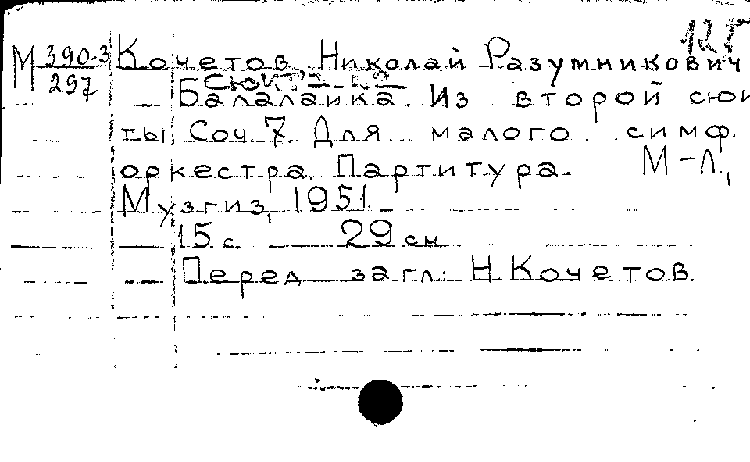 125
М 390-3 Кочетов Николай Разумникович
297
Балалайка. Из второй сюи
ты Соч. 7. Для малого симф.
оркестра. Партитура. М-Л.,
Музгиз, 1951.
15 с 29 см
Перед загл: Н. Кочетов.